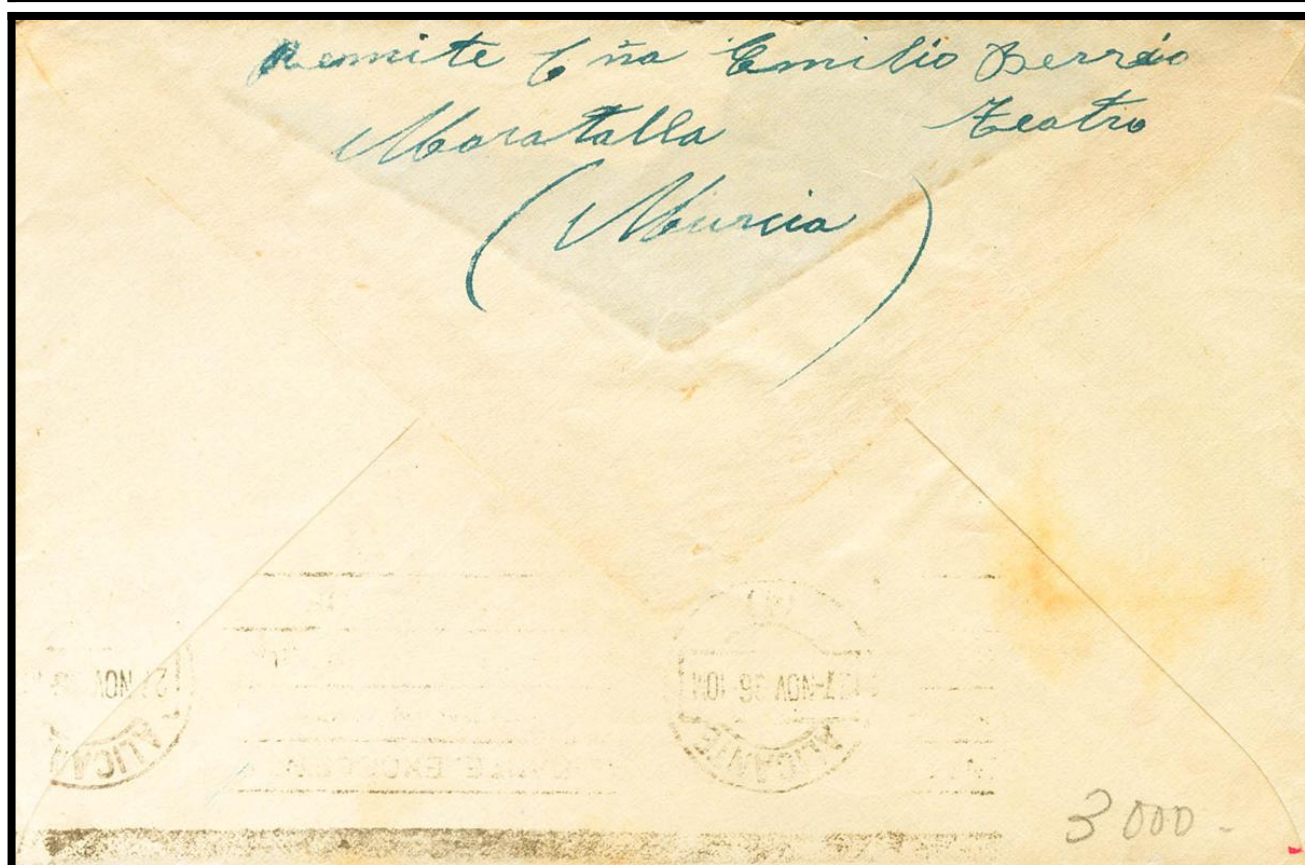 Remite Cña Emilio Berrio
Moratalla Teatro
(Murcia)
27-NOV 36-10M
ALICANTE
ALICAN
3000-